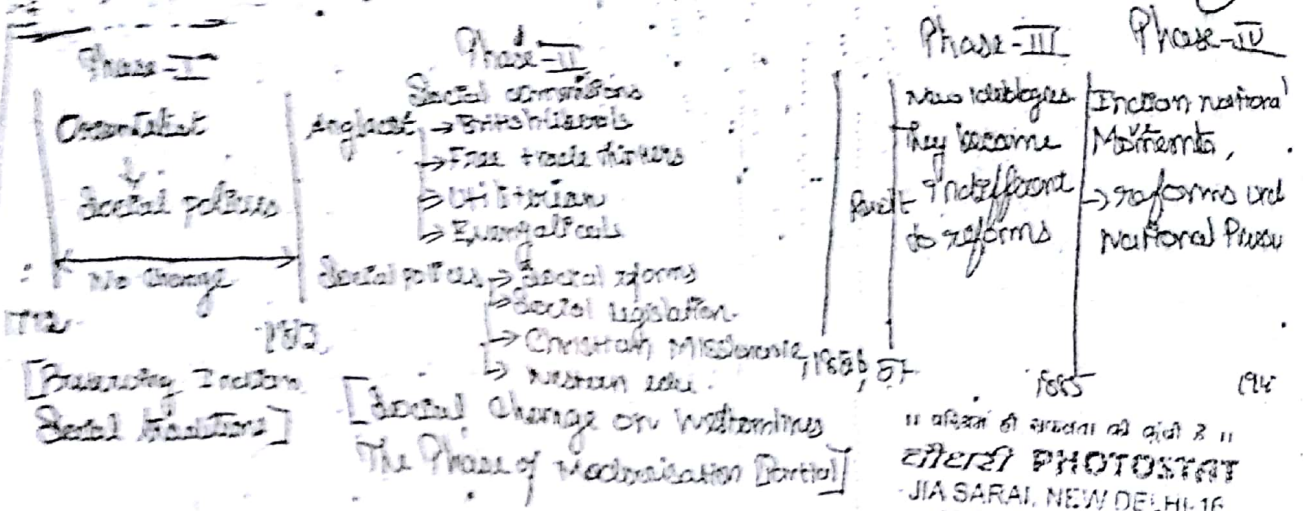 Phase-I
Orientalist
Social policies
No Change
1772
1813
[Preserving Indian
Social traditions]
Phase-II
Social conventions
Anglacist → British liberals
→ Free trade thinkers
→ Utilitarian
→ Evangalicals
Social policies → Social reforms
→ Social legislation
→ Christian Missionaries
→ Western edu.
1856, 57
[Social Change on Western lines
The Phase of Modernisation [Partial]
Phase-III
New Ideologies
They became
Indefferent
to reforms
Revolt
1885
Phase-IV
Indian National
Movements,
→ reforms und
National Pressu
194
" परिश्रम ही सफलता की कुंजी है "
PHOTOSTAT
JIA SARAI, NEW DELHI-16